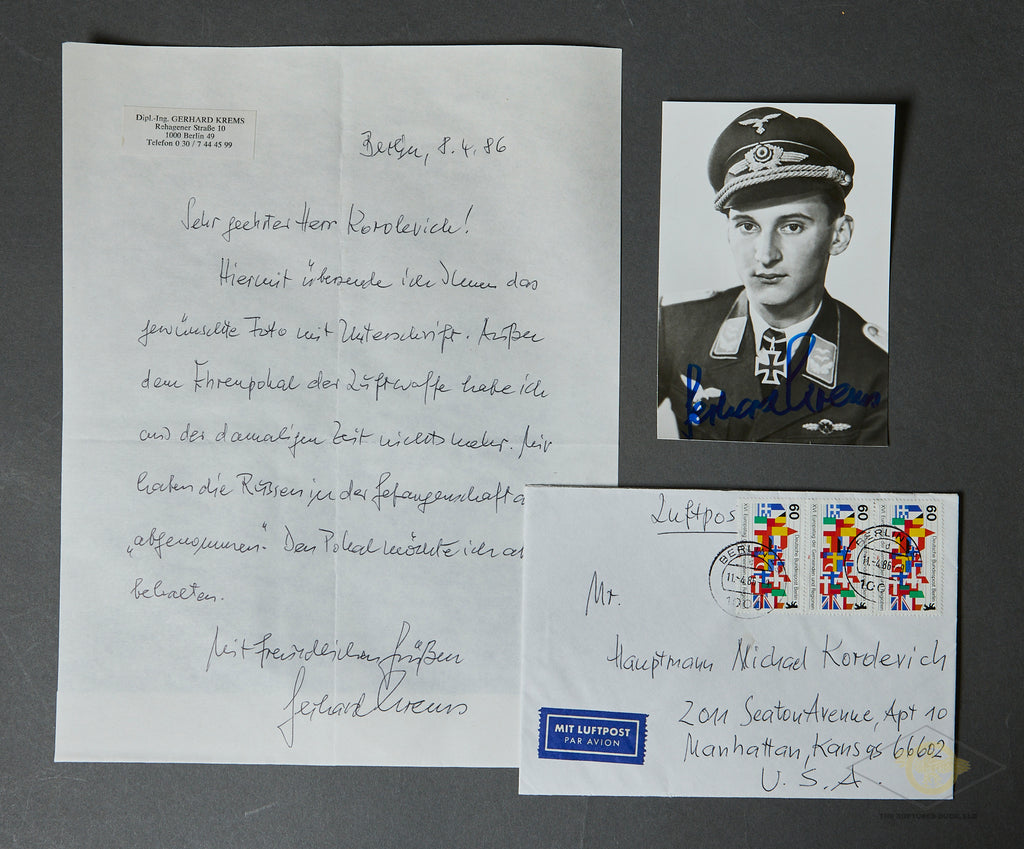 Dipl.-Ing. GERHARD KREMS
Rehagener Straße 10
1000 Berlin 49
Telefon 0 30 / 7 44 45 99
Berlin, 8.4.86
Sehr geehrter Herr Korolevich!
Hiermit übersende ich Ihnen das
gewünschte Foto mit Unterschrift. Außer
dem Ehrenpokal der Luftwaffe habe ich
aus der damaligen Zeit nichts mehr. Mir
haben die Russen in der Gefangenschaft
"abgenommen". Den Pokal möchte ich
behalten.
Mit freundlichen Grüßen
Gerhard Krems
Gerhard Krems
Luftpos
60
60
60
Deutsche Bundespost Berlin
BERLIN
11.-4.86
100
BERLIN
11.-4.86
100
Mr.
Hauptmann Michael Korolevich
2011 Seaton Avenue, Apt 10
Manhattan, Kansas 66602
U. S. A.
MIT LUFTPOST
PAR AVION
THE RUPTURED DUCK, LLC